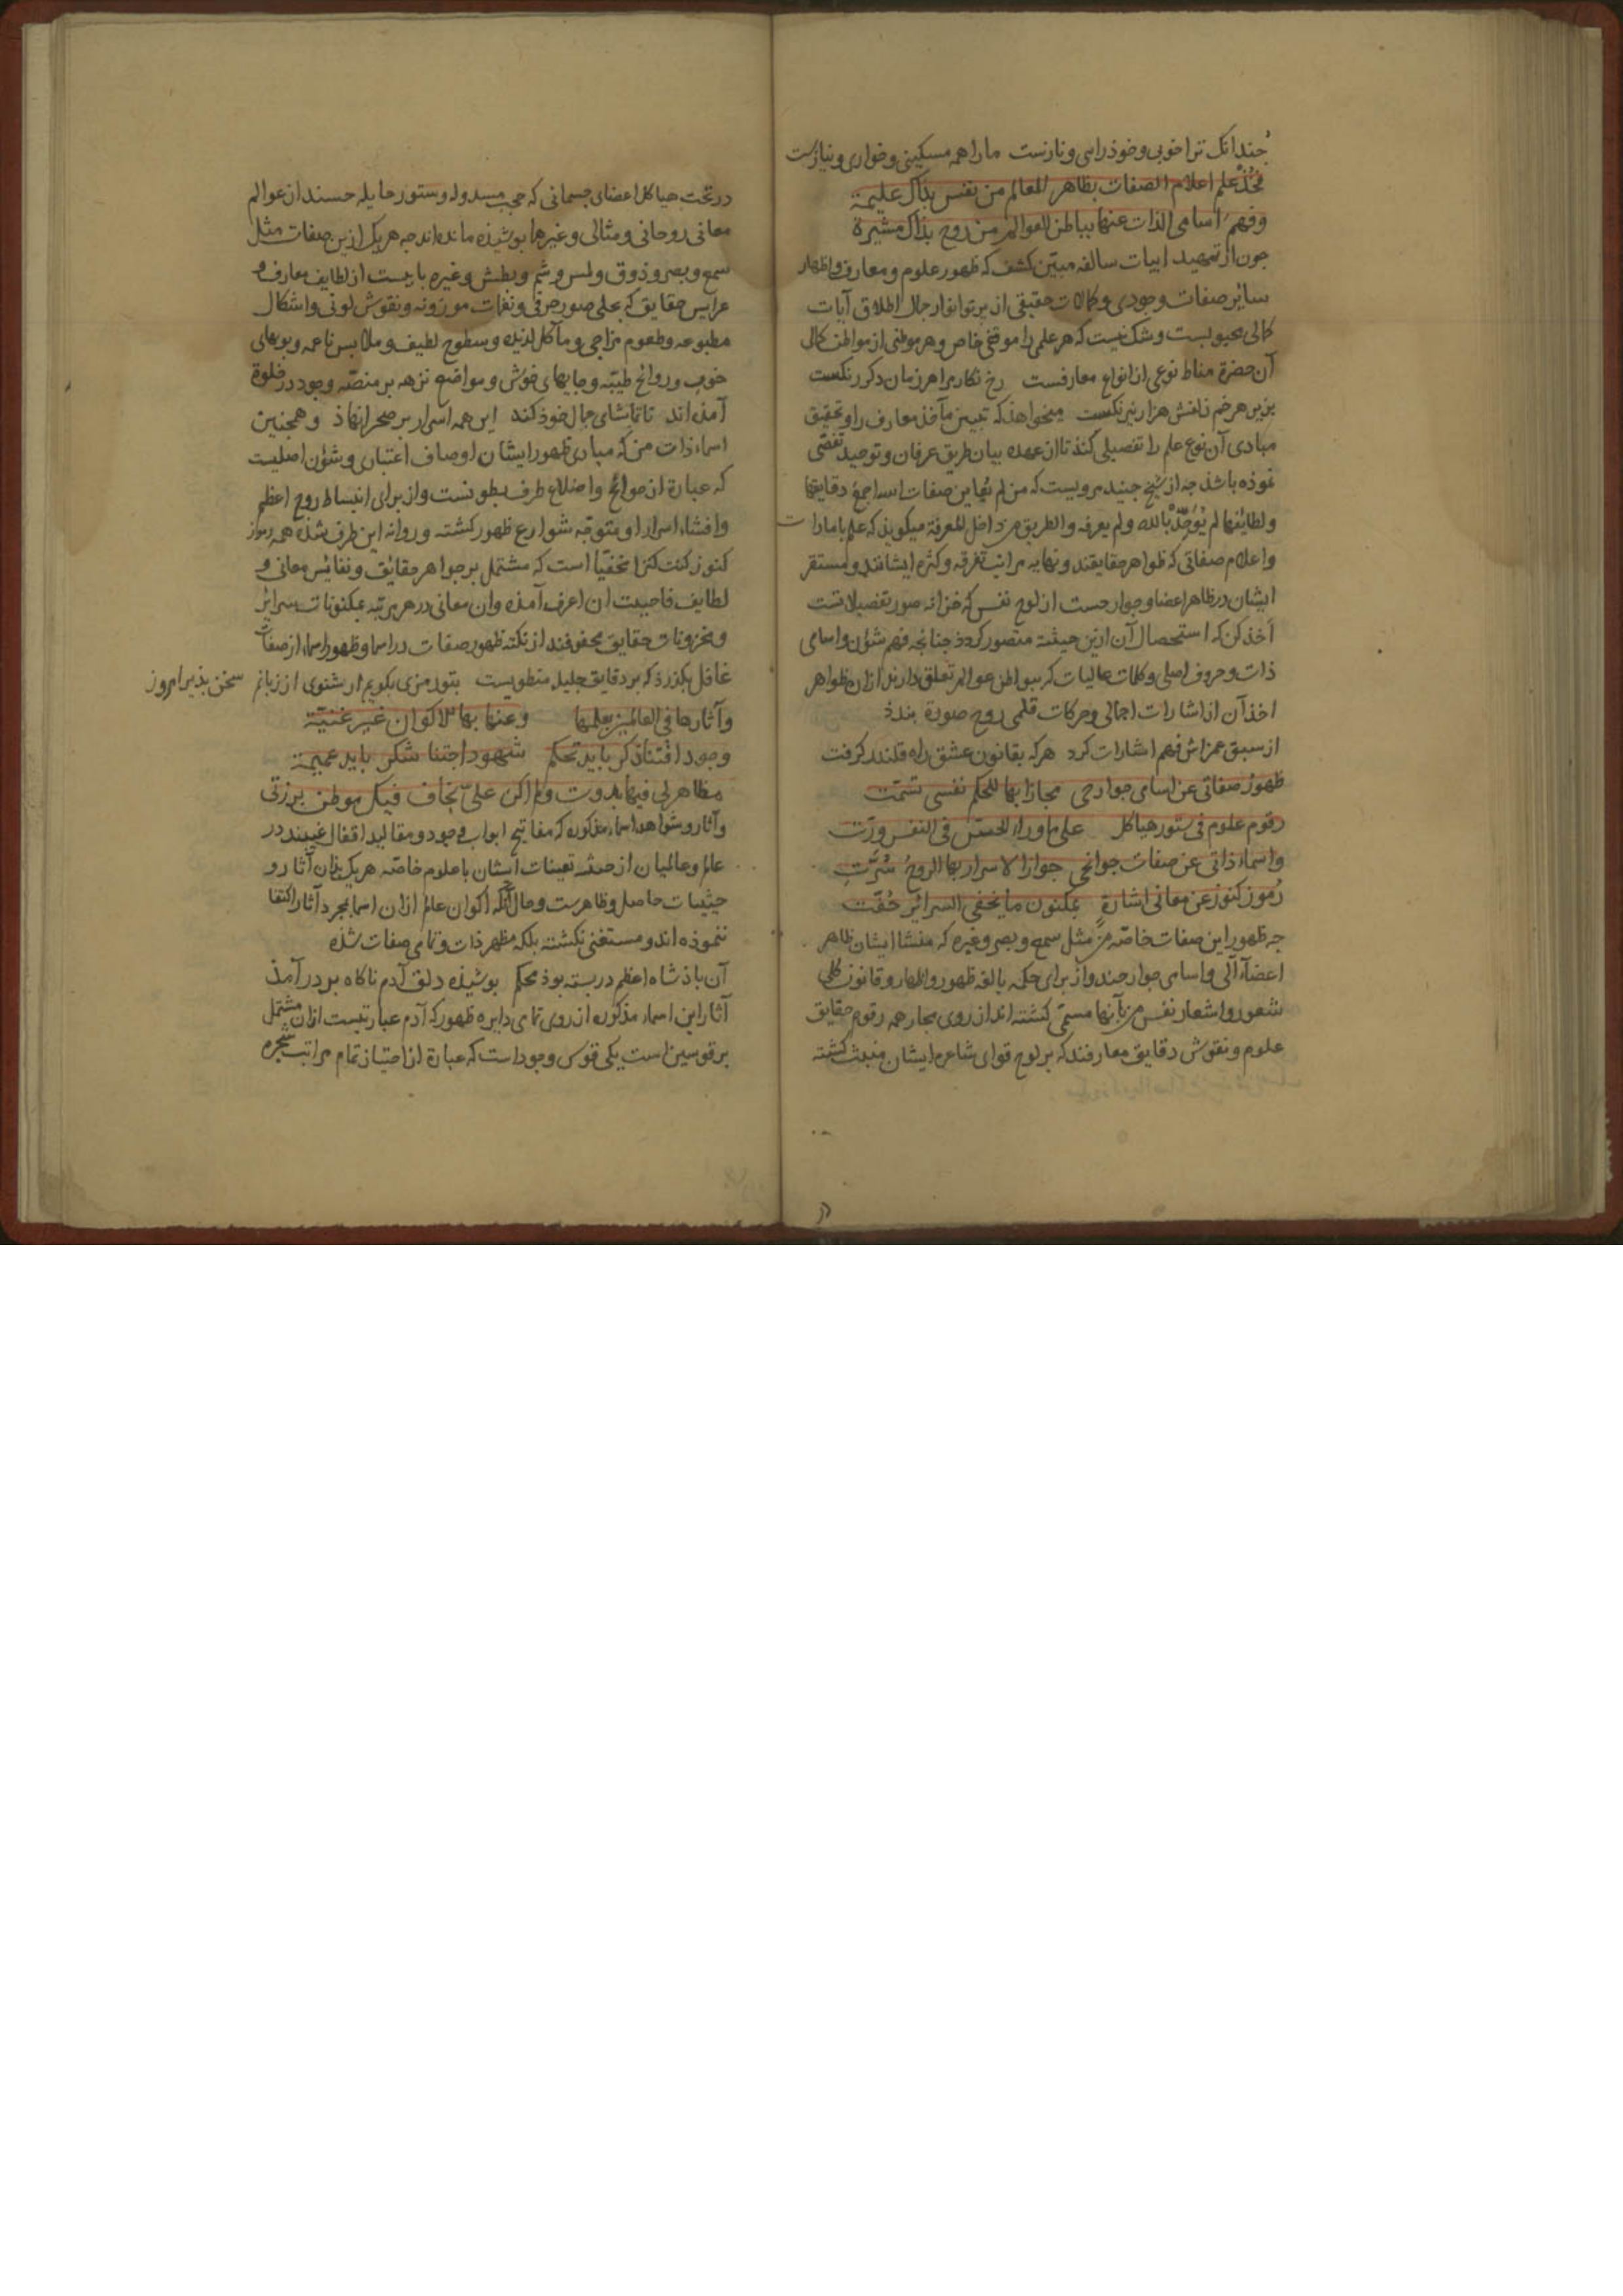 جندانک ترا خوبی و خوذرایی و نازست ما را همه مسکینی و خواری و نیازست
فخذ علم اعلام الصفات بظاهر المعالم من نفس بذاک علیمة
وفهم اسامی الذات عنها بباطن العوالم من روح بذاک مشیرة
جون از تمهید ابیات سالفه مبیّن کشف که ظهور علوم و معارف و اظهار
سایر صفات وجودی و کمالات حقیقی از پرتو انوار جمال اطلاق آیات
کمالی محبوبست و شک نیست که هر علمی را موقفی خاص و هر موطنی از مواطن کمال
آن حضرة مناط نوعی از انواع معارفست رخ نکار مرا هر زمان دکر رنکست
بزیر هر خم زلفش هزار نیرنکست میخواهذ که تبیین مآخذ معارف را و تحقیق
مبادی آن نوع علم را تفصیلی کند تا از عهده بیان طریق عرفان و توحید تفصّی
نموذه باشذ جه از شیخ جنید مرویست که من لم صفات اسد اجمع دقایقها
و لطائفها لم یوحد بالله ولم یعرفه والطریق من داخل المعرفة میکوید که علم
و اعلام صفاتی که ظواهر حقایقند و نهایه مراتب تفرقه و کثرة ایشانند و مستقر
ایشان در ظاهر اعضا و جوارحست از لوح نفس که خزانه صور تفصیلاتست
اخذ کن که استحصال آن ازین حیثیه متصور کردذ جنانجه فهم شئون و اسامی
ذات و حروف اصلی و کلمات عالیات که ببواطن عوالم تعلق دارند از ان ظواهر
اخذ آن از اشارات اجمالی و حرکات قلمی روح صورة بندذ
از سبق غمزاش فهم اشارات کرد هر که بقانون عشق راه قلندر کرفت
ظهور صفاتی عن اسامی جوارحی مجازا بها للحکم نفسی تسمّت
رقوم علوم فی ستور هیاکل علی ما وراء الحسّ فی النفس ورّت
واسماء ذاتی عن صفات جوانحی جوازا لاسرار بها الروح سُرَّتِ
رموز کنوز عن معانی اشارةٍ بمکنون ما یخفی السرائر حُفّت
جه ظهور این صفات خاصّه من مثل سمع و بصر و غیره که منشا ایشان ظاهر
اعضاء آلی و اسامی جوارحند و از برای حکمه بالغه ظهور و اظهار و قانون کلی
شعور و اشعار نفس من بآنها مسمّی کشته اند از روی مجاز همه رقوم حقایق
علوم و نقوش دقایق معارفند که بر لوح قوای شاعره ایشان مثبت کشته
در تحت هیاکل اعضای جسمانی که حجب مسدوله و ستور حایله حسند از عوالم
معانی روحانی و مثالی و غیرها بوشیذه مانده اند جه هر یک ازین صفات مثل
سمع و بصر و ذوق و لمس و شم و بطش و غیره بابیست از لطایف معارف و
عرایس حقایق که بحلی صور حرفی و نغمات موزونه و نقوش لونی و اشکال
مطبوعه و طعوم مزاجی و مآکل لذیذه و سطوح لطیف و ملابس ناعمه و بویهای
خوب و روائح طیّبه و جایهای خوش و مواضع نزهه بر منصّه وجود در خلوة
آمذه اند تا تماشای جمال خوذ کند این همه اسرار بر صحرا نهاذ و همجنین
اسماء ذات من که مبادی ظهور ایشان اوصاف اعتباری و شئون اصلیست
که عبارة از جوانح و اضلاع طرف بطونست و از برای انبساط روح اعظم
و افشاء اسرار او متوجه شوارع ظهور کشته و روانه این طرف شذه همه رموز
کنوز کنت کنزا مخفیا است که مشتمل بر جواهر حقائق و نفائس معانی و
لطایف فاحببت ان اعرف آمذه و ان معانی در هر مرتبه بمکنونات سرائر
و مخزونات حقایق محفوفند از نکته ظهور صفات در اسما و ظهور اسماء از صفات
غافل بکذرذ که بر دقایق جلیله منطویست بتو رمزی بکویم ار شنوی از زبانم سخن بذیر امروز
وآثارها فی العالمین بعلمها وعنها بها الاکوان غیر غنیّة
وجود اقتنا ذکر باید تحکم شهود اجتنا شکر باید عمیمة
مظاهر لی فیها بدوت ولم اکن علیّ بخاف قبل موطن برزتی
و آثار و شواهد اسماء مذکوره که مفاتیح ابواب وجود و مقالید اقفال غیبند در
عالم و عالمیان از حیثیه تعینات ایشان با علوم خاصّه هر یک بذان آثار و
حیثیات حاصل و ظاهرست و حال آنکه اکوان عالم ازان اسما بمجرد آثار اکتفا
ننموذه اند و مستغنی نکشته بلکه مظهر ذات و تمامی صفات شذه
آن باذشاه اعظم در بسته بوذ محکم بوشیذه دلق آدم ناکاه بر در آمذ
آثار این اسماء مذکوره از روی تمامی دایره ظهور که آدم عبارتست ازان مشتمل
بر قوسین است یکی قوس وجود است که عبارة از امتیاز تمام مراتب شجره